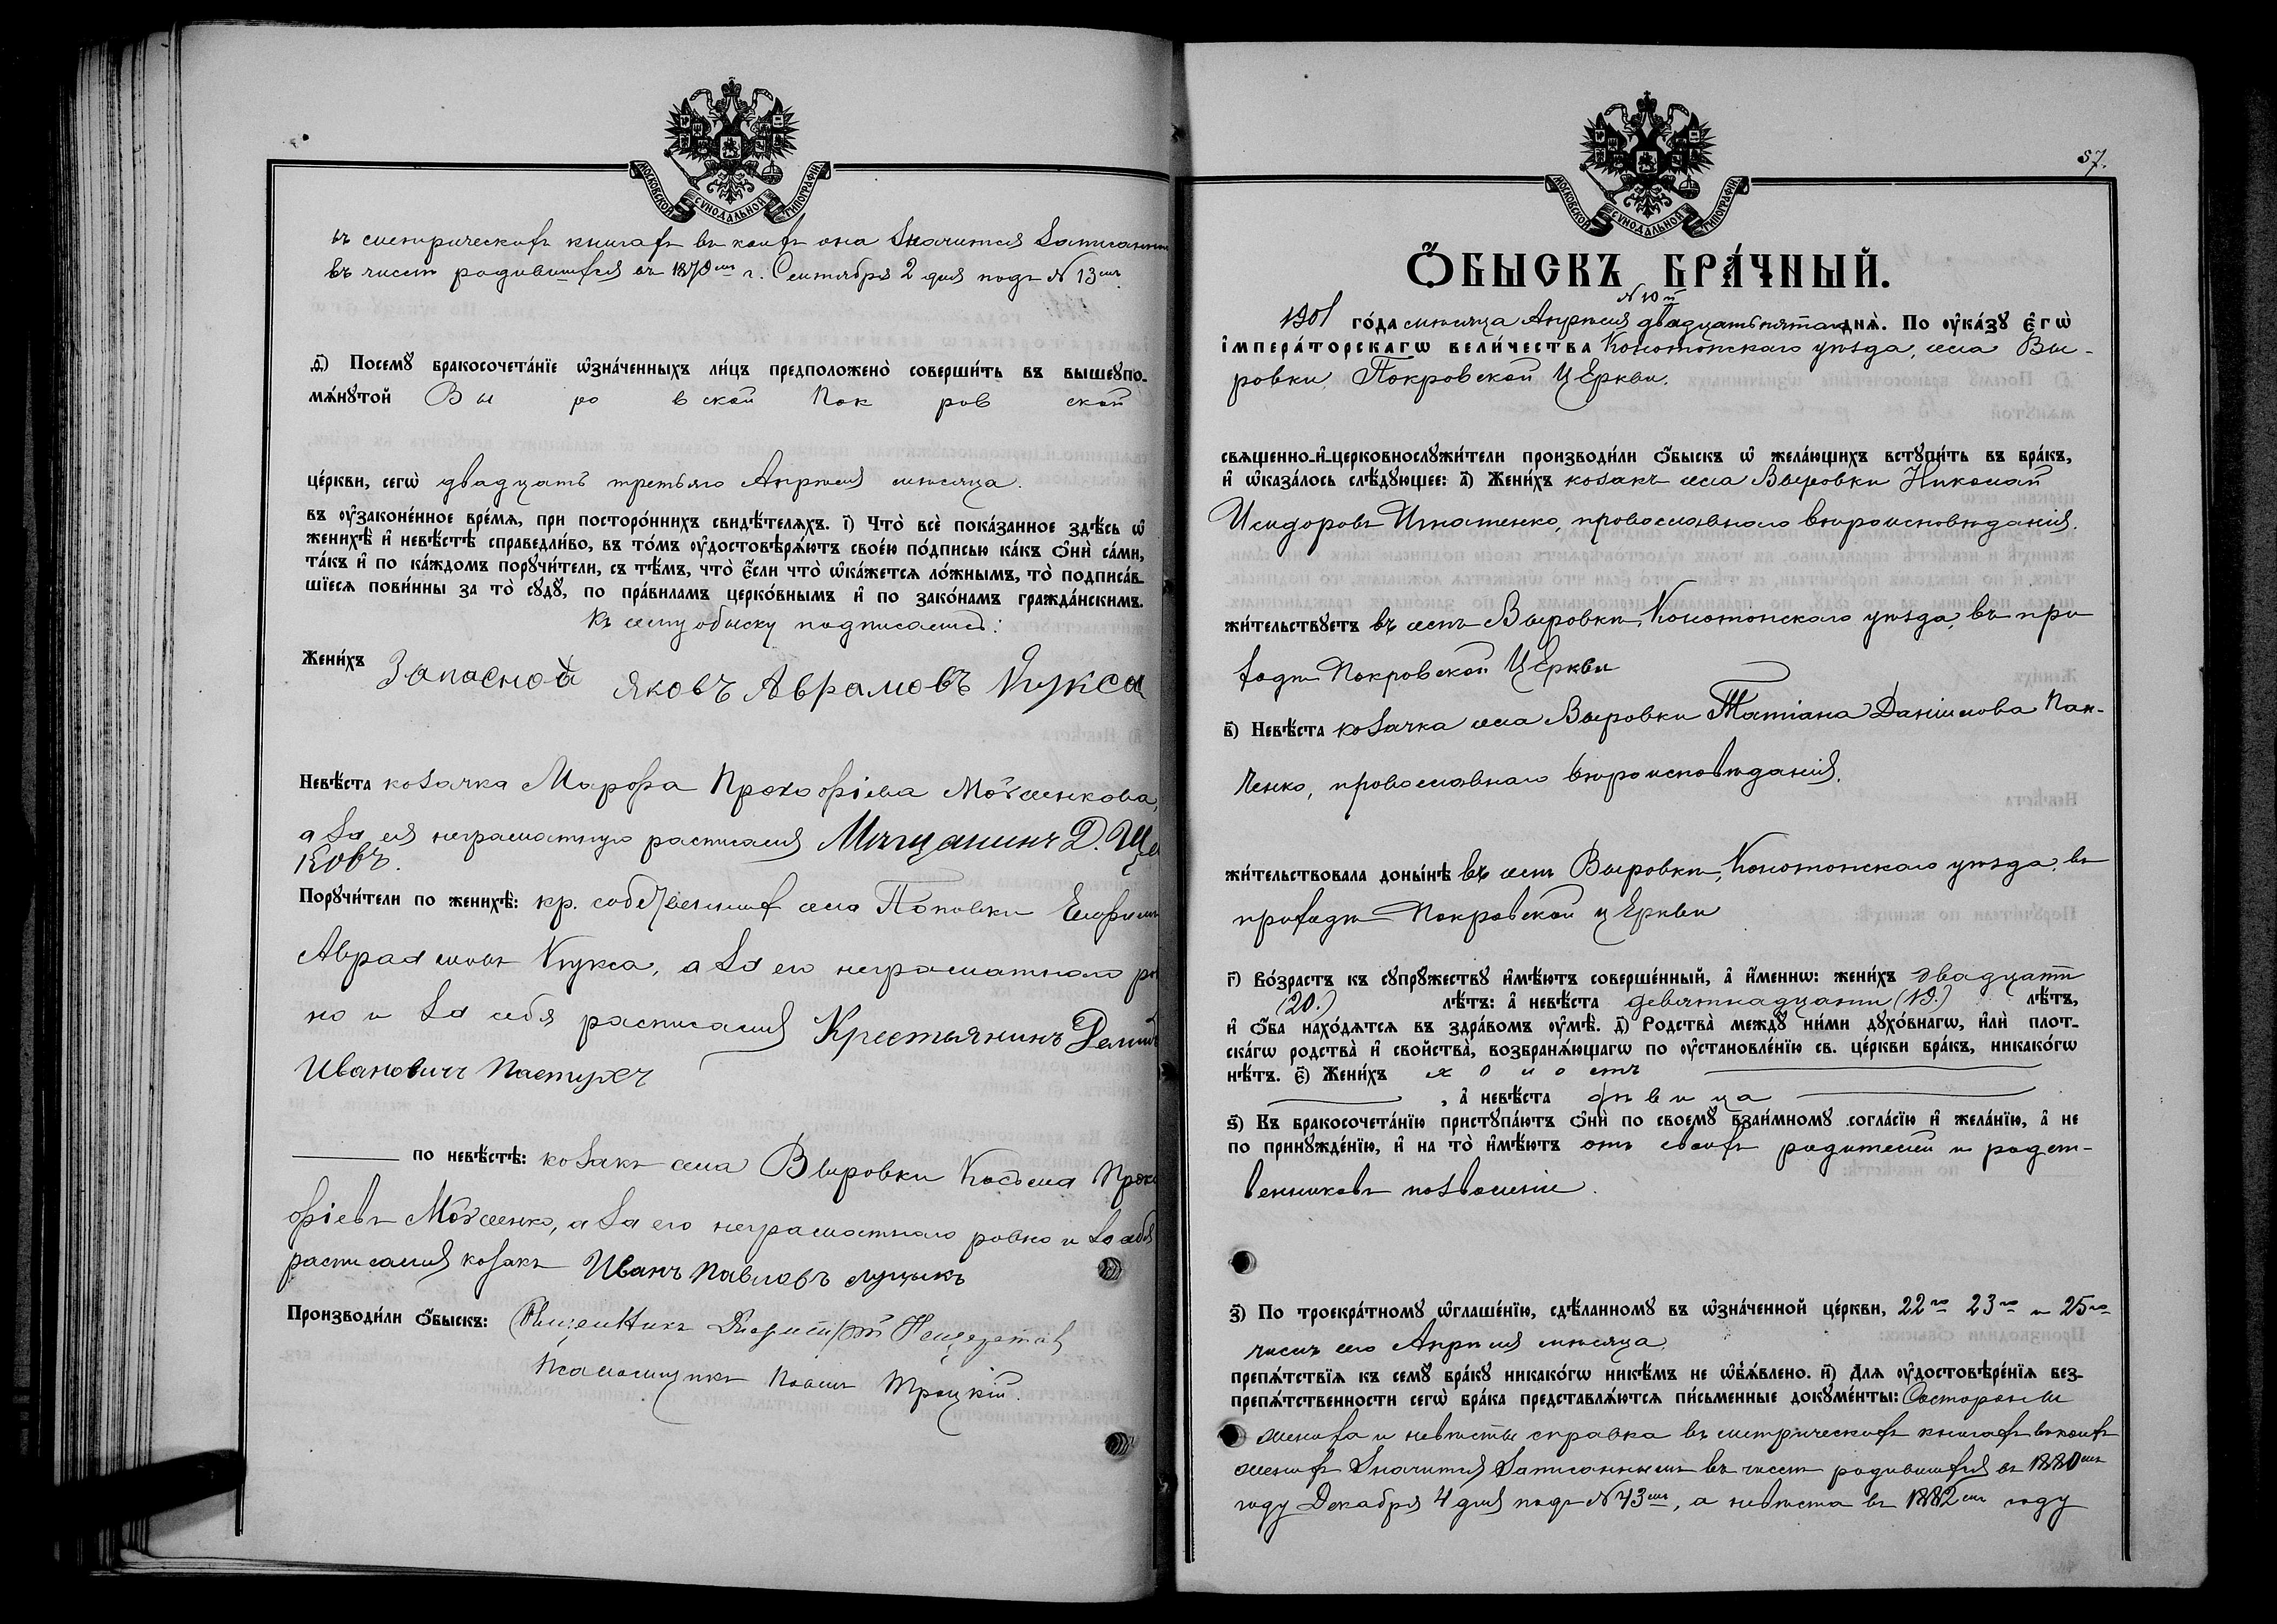 МОСКОВСКОЙ СѴНОДАЛЬНОЙ ТИПОГРАФІИ.
въ метрическихъ книгахъ въ коихъ она значится записанною
въ числѣ родившихся въ 1870мъ г. Сентября 2 дня подъ N 13мъ.
д҃і) Посемꙋ̀ бракосочета́нїе ѡ҆зна́ченныхъ ли́цъ предположено̀ соверши́ть въ вышеꙋпо-
мѧ́нꙋтой Вы ро вской Пок ров ской
це́ркви, сегѡ̀ двадцать третьяго Апрѣля мѣсяца.
въ ᲂу҆законе́нное вре́мѧ, при посторо́ннихъ свидѣ́телѧхъ. і҃) Что̀ всѐ пока́занное здѣ́сь ѡ҆
женихѣ̀ и҆ невѣ́стѣ справедли́во, въ то́мъ ᲂу҆достовѣрѧ́ютъ свое́ю по́дписью ка́къ ѻ҆нѝ са́ми,
та́къ и҆ по ка́ждомъ порꙋчи́тели, съ тѣ́мъ, что̀ є҆́сли что̀ ѡ҆ка́жетсѧ ло́жнымъ, то̀ подписа́в-
шїесѧ пови́нны за то̀ сꙋдꙋ̀, по пра́виламъ церко́внымъ и҆ по зако́намъ гражда́нскимъ.
Къ сему обыску подписались:
Жени́хъ Запасной Яковъ Аврамовъ Кукса
Невѣ́ста козачка Марфа Прокофіева Мойсенкова,
а за ея неграмотную расписался Мѣщанинъ Д.
ковъ.
Порꙋчи́тели по женихѣ̀: кр. собственникъ села Поповки
Аврамовъ Кукса, а за его неграмотнаго
но и за себя расписался Крестьянинъ
Ивановичъ Пастухъ
по невѣ́стѣ: козакъ села Выровки Косьма Проко
фіевъ Мойсенко, а за его неграмотнаго ровно и за себя
расписался козакъ Иванъ Павловъ Луцыкъ
Производи́ли ѻ҆́быскъ: Священникъ
Псаломщикъ Павелъ Троцкій.
57.
МОСКОВСКОЙ СѴНОДАЛЬНОЙ ТИПОГРАФІИ.
Ѻ҆́БЫСКЪ БРА́ЧНЫЙ.
N 10й
1901 го́да мѣсяца Апрѣля двадцатьпятаго днѧ̀. По ᲂу҆ка́зꙋ Є҆гѡ̀
І҆мпера́торскагѡ вели́чества Конотопскаго уѣзда, села Вы-
ровки, Покровской Церкви.
свѧщенно-и҆-церковнослꙋжи́тели производи́ли ѻ҆́быскъ ѡ҆ жела́ющихъ встꙋпи́ть въ бра́къ,
и҆ ѡ҆каза́лось слѣ́дꙋющее: а҃) Жени́хъ козакъ села Выровки Николай
Исидоровъ Игнатенко, православнаго вѣроисповѣданія.
жи́тельствꙋетъ въ селѣ Выровкѣ, Конотопскаго уѣзда, въ при
ходѣ Покровской Церкви
в҃) Невѣ́ста козачка села Выровки Татіана Даніилова Пан-
ченко, православнаго вѣроисповѣданія.
жи́тельствовала доны́нѣ въ селѣ Выровкѣ, Конотопскаго уѣзда, въ
приходѣ Покровской церкви
г҃) Во́зрастъ къ сꙋпрꙋ́жествꙋ и҆мѣ́ютъ соверше́нный, а҆ и҆́меннѡ: жени́хъ двадцати
(20.) лѣ́тъ: а҆ невѣ́ста девятнадцати (19.) лѣ́тъ,
и҆ ѻ҆́ба нахо́дѧтсѧ въ здра́вомъ ᲂу҆мѣ̀. д҃) Родства̀ междꙋ̀ ни́ми дꙋхо́внагѡ, и҆лѝ плот-
ска́гѡ родства̀ и҆ свойства̀, возбранѧ́ющагѡ по ᲂу҆становле́нїю св. це́ркви бра́къ, никако́гѡ
нѣ́тъ. є҃) Жени́хъ холостъ
, а҆ невѣ́ста дѣвица
ѕ҃) Къ бракосочета́нїю пристꙋпа́ютъ ѻ҆нѝ по своемꙋ̀ взаи́мномꙋ согла́сїю и҆ жела́нїю, а҆ не
по принꙋжде́нїю, и҆ на то̀ и҆мѣ́ютъ отъ своихъ родителей и родст-
венниковъ позволеніе.
з҃) По троекра́тномꙋ ѡ҆глаше́нїю, сдѣ́ланномꙋ въ ѡ҆зна́ченной це́ркви, 22го 23го и 25го
числъ сего Апрѣля мѣсяца.
препѧ́тствїѧ къ семꙋ̀ бра́кꙋ никако́гѡ никѣ́мъ не ѡ҆б̾ѧ́влено. и҃) Длѧ ᲂу҆достовѣре́нїѧ без-
препѧ́тственности сегѡ̀ бра́ка представлѧ́ютсѧ пи́сьменные докꙋме́нты: Состороны
жениха и невѣсты справка въ метрическихъ книгахъ въ коихъ
женихъ значится записаннымъ въ числѣ родившихся въ 1880мъ
году Декабря 4 дня подъ N 43мъ, а невѣста въ 1882мъ году